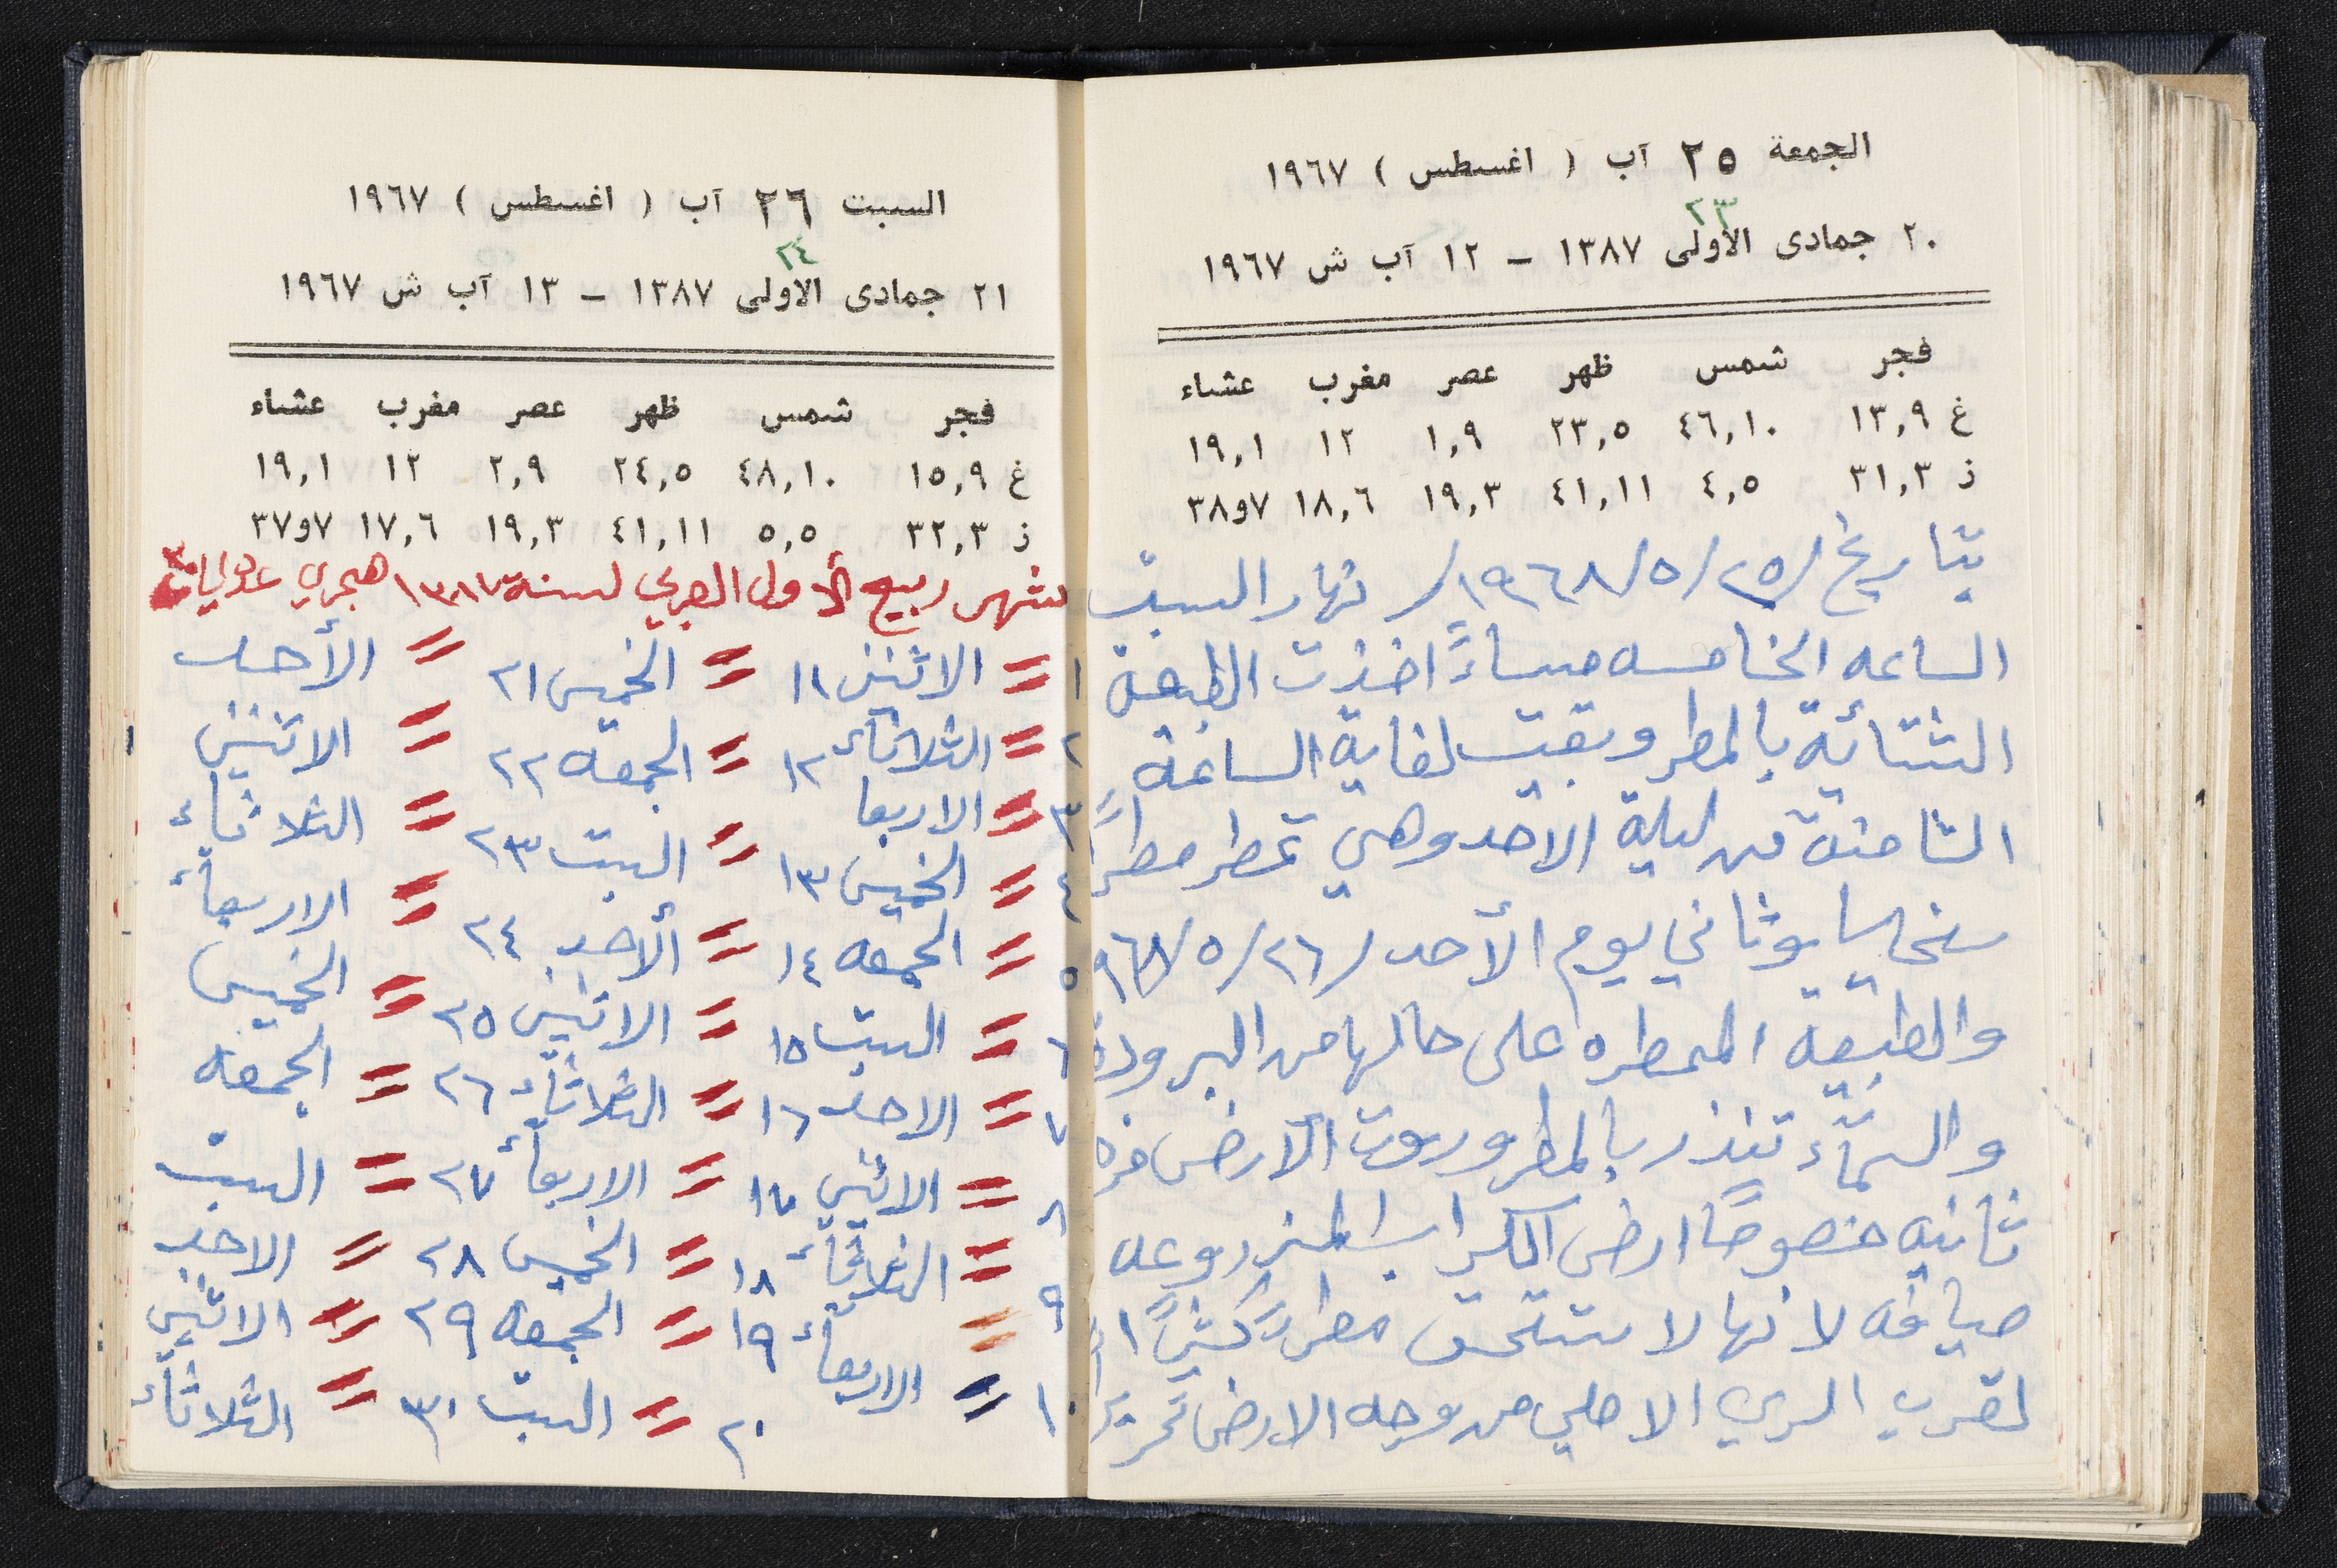 الجمعة ٢٥ آب ( اغسطس ) ١٩٦٧
٢٣
٢٠ جمادى الأولى ١٣٨٧ – ١٢ آب ش ١٩٦٧
فجر شمس ظهر عصر مغرب عشاء
غ ١٣,٩ ٤٦,١٠ ٢٣,٥ ١,٩ ١٢ ١٩,١
ز ٣١,٣ ٤,٥ ٤١,١١ ١٩,٣ ١٨,٦ ٧و٣٨
بتاريخ /٢٥/٥/١٩٦٨/ نهار السبت
الساعه الخامسه مساءً اخذت الطبيعة
الشتائية بالمطر وبقيت لغاية الساعة
الثامنة من ليلة الاحد وهي تمطر مطراً
سنحاسايو ثاني يوم الأحد /٢٦/٥/٩٦٨
والطبيعة الممطره على حالها من البرودة
والسمآء تنذر بالمطر وروت الارض مره
ثانيه خصوصاً ارض الكسراب المزروعه
صيافه لانها لا تستحق مطراً كثيراً
لقرب الري الاصلي من وجه الارض
السبت ٢٦ آب ( اغسطس ) ١٩٦٧
٢٤
٢١ جمادى الاولى ١٣٨٧ – ١٣ آب ش ١٩٦٧
فجر شمس ظهر عصر مغرب عشاء
غ ١٥,٩ ٤٨,١٠ ٢٤,٥ ٢,٩ ١٢ ١٩,١
ز ٣٢,٣ ٥,٥ ٤١,١١ ١٩,٣ ١٧,٦ ٧و٣٧
شهر ربيع ألاول العربي لسنة ١٣٨٧ هجري
١ = الاثنين ١١ = الخميس ٢١ = الأحد
٢ = الثلاثاء ١٢ = الجمعه ٢٢ = الاثنين
٣ = الاربعا = السبت ٢٣ = الثلاثاء
٤ = الخميس ١٣ = ألأحد ٢٤ = الاربعاء
٥ = الجمعه ١٤ = الاثنين ٢٥ = الخميس
٦ = السبت ١٥ = الثلاثاء ٢٦ = الجمعه
٧ = الاحد ١٦ = الاربعاء ٢٧ = السبت
٨ = الاثنين ١٧ = الخميس ٢٨ = الاحد
٩ = الثلاثاء ١٨ = الجمعه ٢٩ = الاثنين
١٠ = الاربعاء ١٩ = السبت ٣٠ = الثلاثاء
٢٠